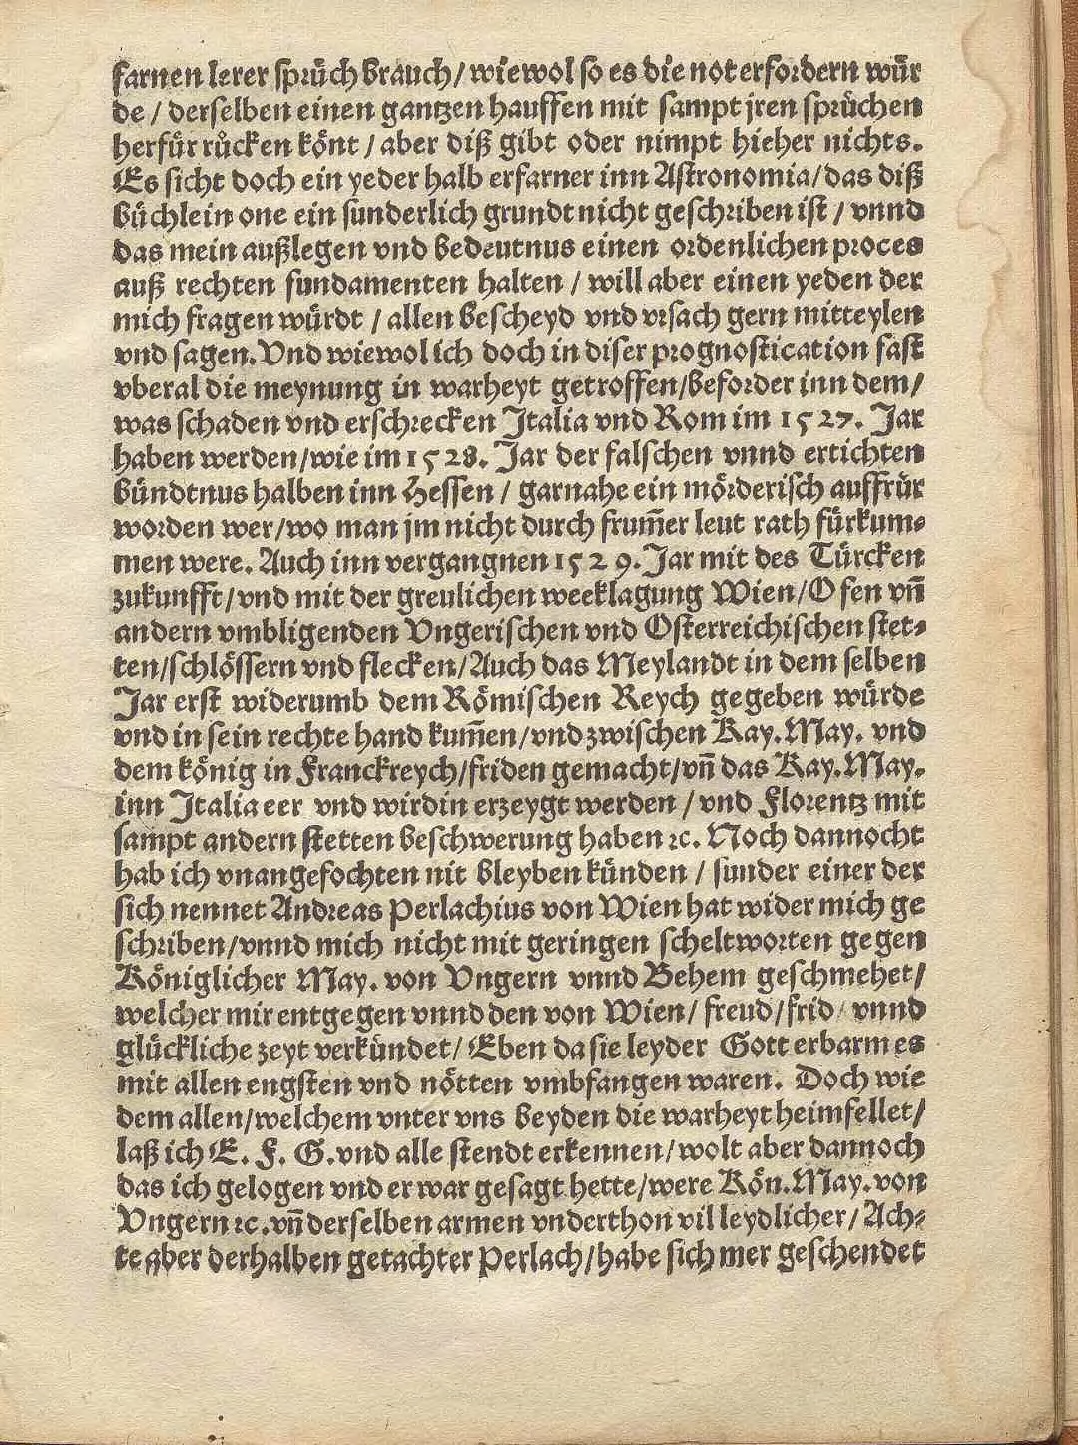 farnen lerer sprüch brauch / wiewol so es die not erfordern wür
de / derselben einen gantzen hauffen mit sampt jren sprüchen
herfür rücken könt / aber diß gibt oder nimpt hieher nichts.
Es sicht doch ein yeder halb erfarner inn Astronomia / das diß
büchlein one ein sunderlich grundt nicht geschriben ist / vnnd
das mein außlegen vnd bedeutnus einen ordenlichen proces
auß rechten fundamenten halten / will aber einen yeden der
mich fragen würdt / allen bescheyd vnd vrsach gern mitteylen
vnd sagen. Vnd wiewol ich doch in diser prognostication fast
vberal die meynung in warheyt getroffen / beforder inn dem /
was schaden vnd erschrecken Italia vnd Rom im 1527. Jar
haben werden / wie im 1528. Jar der falschen vnnd ertichten
bündtnus halben inn Hessen / garnahe ein mörderisch auffrür
worden wer / wo man jm nicht durch frum̃er leut rath fürkum⸗
men were. Auch inn vergangnen 1529. Jar mit des Türcken
zukunfft / vnd mit der greulichen weeklagung Wien / Ofen vñ
andern vmbligenden Vngerischen vnd Osterreichischen stet⸗
ten / schlössern vnd flecken / Auch das Meylandt in dem selben
Jar erst widerumb dem Römischen Reych gegeben würde
vnd in sein rechte hand kum̃en / vnd zwischen Kay. May. vnd
dem könig in Franckreych / friden gemacht / vñ das Kay. May.
inn Italia eer vnd wirdin erzeygt werden / vnd Florentz mit
sampt andern stetten beschwerung haben ꝛc. Noch dannocht
hab ich vnangefochten nit bleyben künden / sunder einer der
sich nennet Andreas Perlachius von Wien hat wider mich ge
schriben / vnnd mich nicht mit geringen scheltworten gegen
Königlicher May. von Vngern vnnd Behem geschmehet /
welcher mir entgegen vnnd den von Wien / freud / frid / vnnd
glückliche zeyt verkündet / Eben da sie leyder Gott erbarm es
mit allen engsten vnd nötten vmbfangen waren. Doch wie
dem allen / welchem vnter vns beyden die warheyt heimfellet /
laß ich E. F. G. vnd alle stendt erkennen / wolt aber dannoch
das ich gelogen vnd er war gesagt hette / were Kön. May. von
Vngern ꝛc. vñ derselben armen vnderthon vil leydlicher / Ach⸗
te aber derhalben getachter Perlach / habe sich mer geschendet